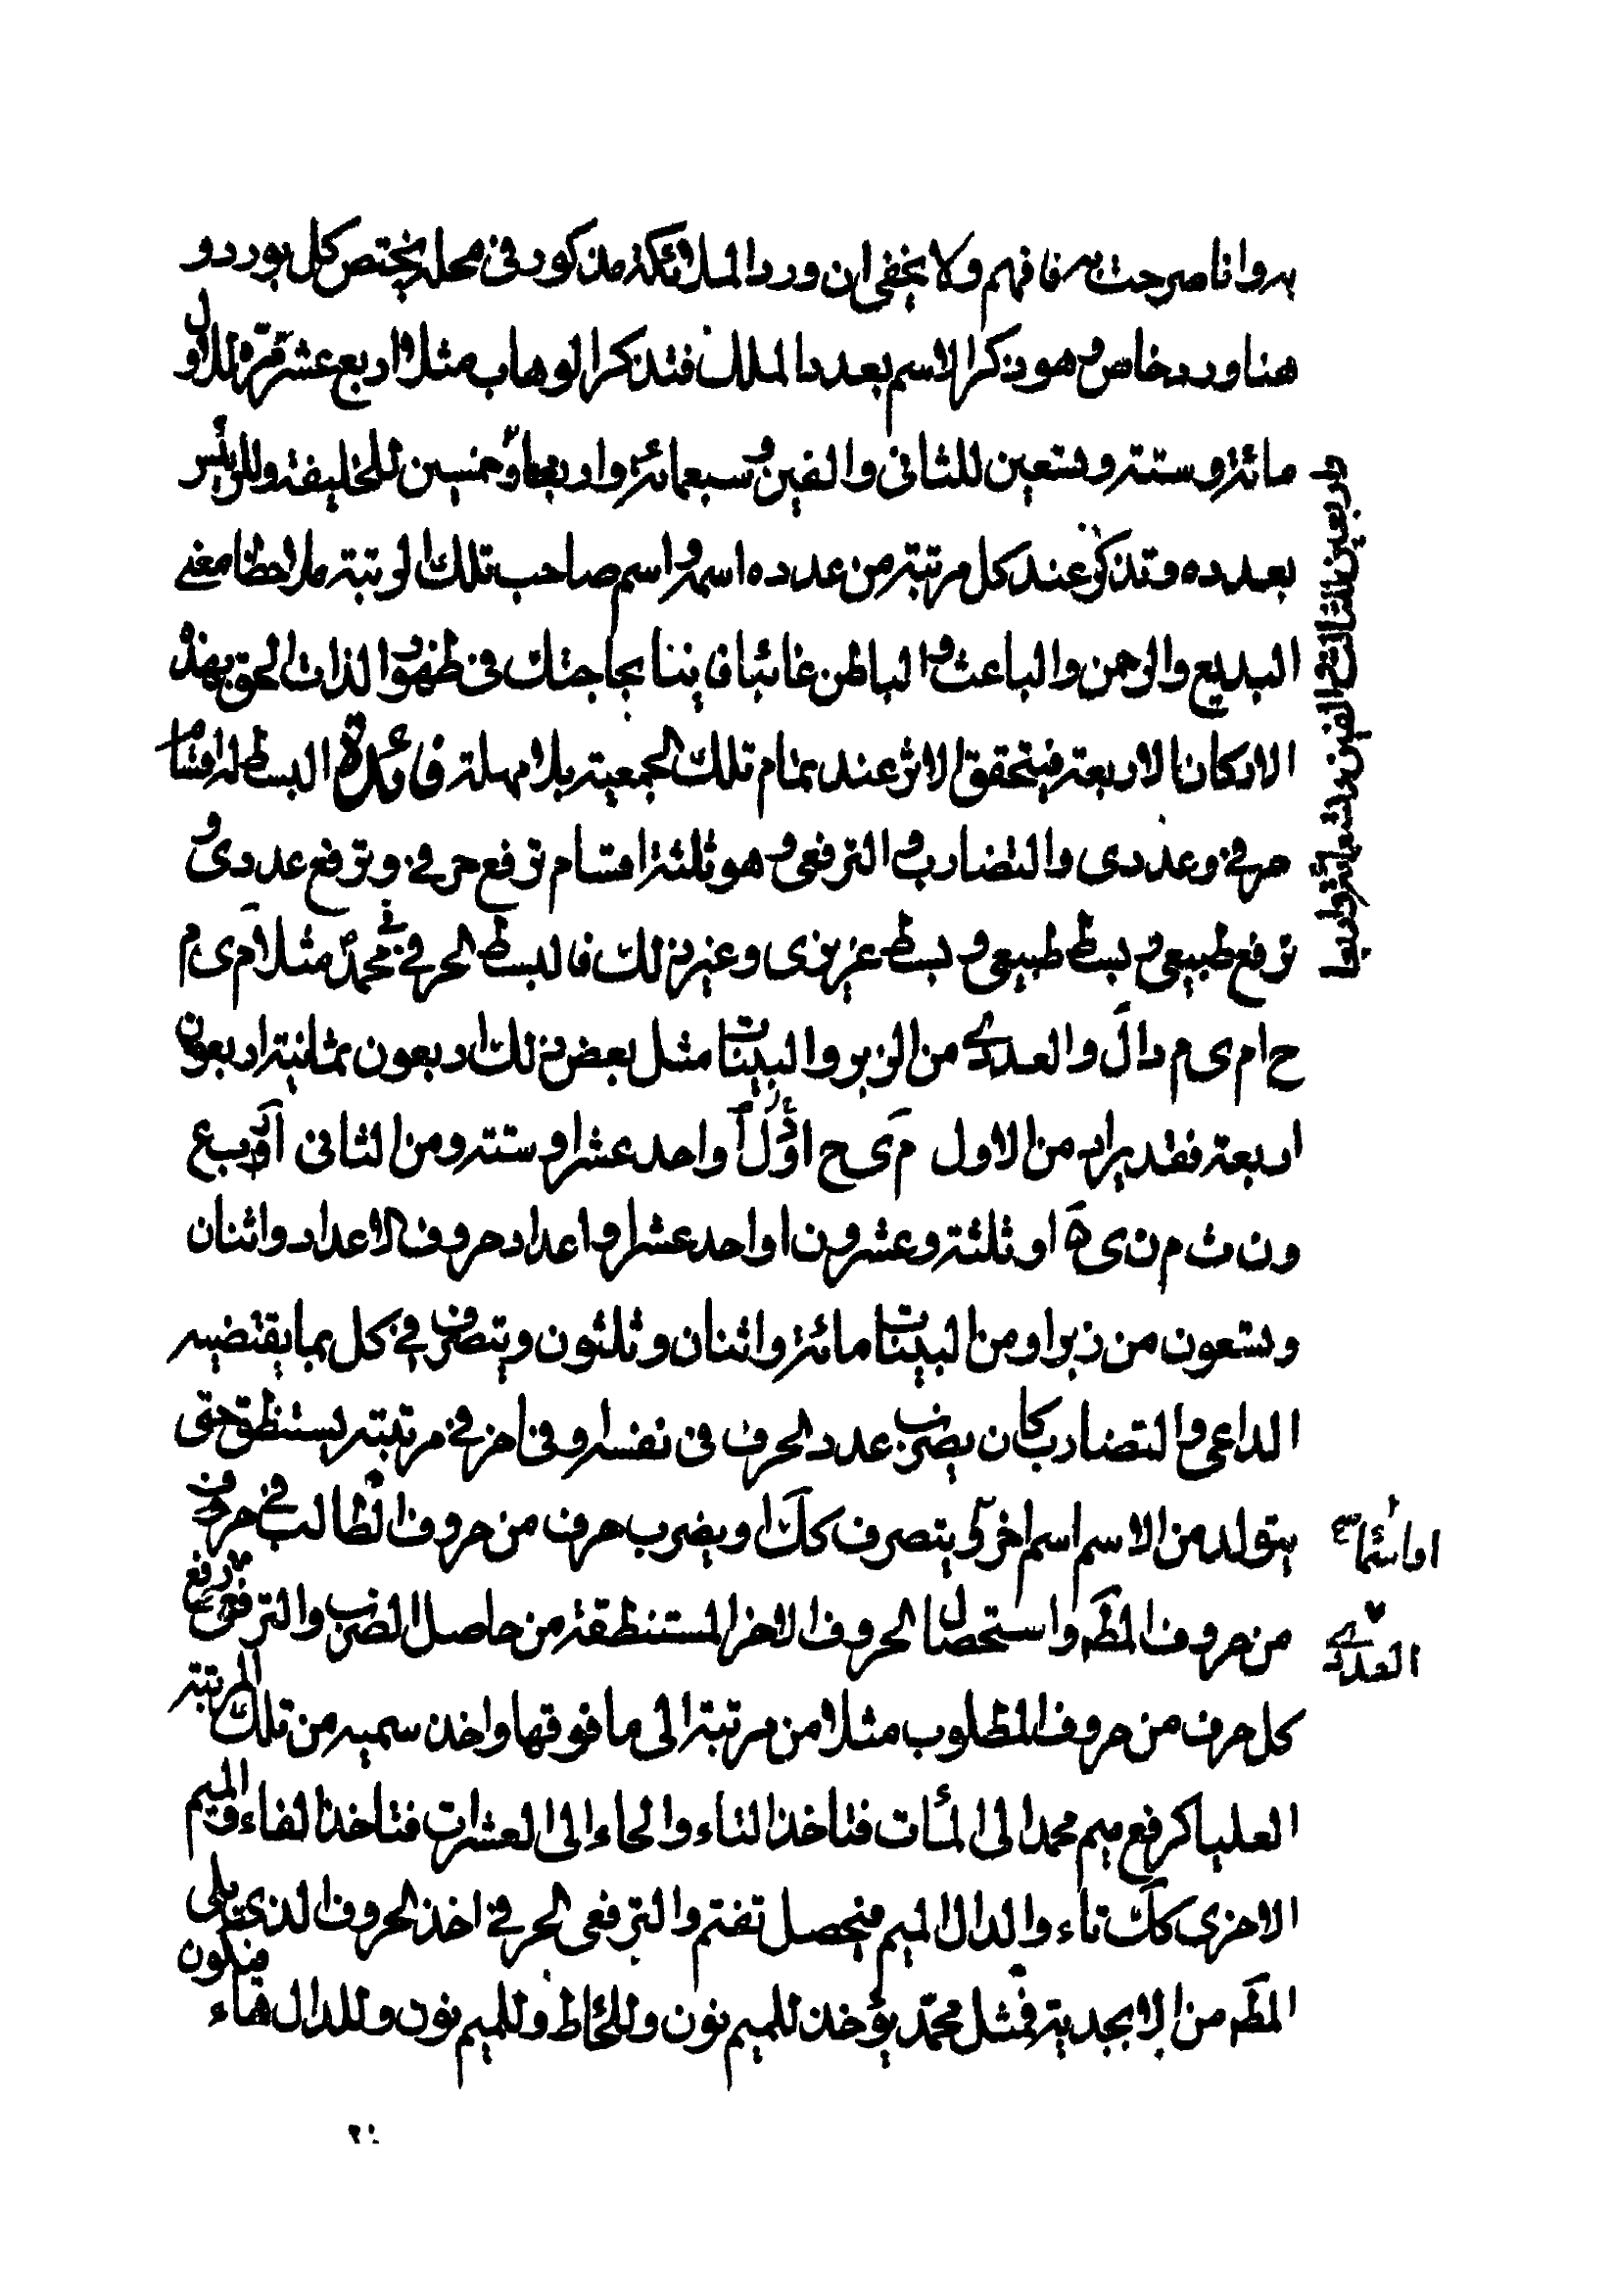 به وانا صرحت به فافهم ولا يخفى ان ورد الملائكة مذكور فى محله يختص كل بورد و
هنا ورد خاص وهو ذكر الاسم بعدد الملك فتذكر الوهاب مثلا اربع عشرة مرة للاول
مائة وستة وتسعين للثانى والفين وسبعمائة واربعا وخمسين للخليفة وللرئيس
بعدده وتذكر عند كل مرتبة من عدده اسمه واسم صاحب تلك الرتبة ملاحظا معنى
البديع والرحمن والباعث والباطن غائبا فانيا بحاجتك فى ظهور الذات الحق بهذه
الاركان الاربعة فيتحقق الاثر عند تمام تلك الجمعية بلا مهلة فائدة البسط له اقسام
حرفى وعددى والتضارب والترفعى وهو ثلثة اقسام ترفع حرفى وترفع عددى و
ترفع طبيعى وبسط طبيعى وبسط غريزى وغير ذلك فالبسط الحرفى فى محمد مثلا م ى م
ح ا م ى م دال والعددى من الزبر والبينات مثل بعض ذلك اربعون ثمانية اربعون
اربعة فقد يراد من الاول م ى ح ا د ل او احد عشر او ستة ومن الثانى ا ر ب ع
و ن ث م ن ى ة او ثلثة وعشرون او احد عشر او اعداد حروف الاعداد واثنان
وتسعون من زبر او من البينات مائة واثنان وثلثون ويتصرف فى كل بما يقتضيه
الداعى والتضارب كان يضرب عدد الحرف فى نفسه او فى اخر فى مرتبته يستنطق حتى
يتولد من الاسم اسم اخر او يتصرف كك او يضرب حرف من حروف الطالب فى حرف
من حروف المط واستحصال الحروف الاخر المستنطقة من حاصل الضرب والترفعى رفع
كل حرف من حروف المطلوب مثلا من مرتبة الى ما فوقها واخذ سميه من تلك المرتبة
العليا كرفع ميم محمد الى المئات فتاخذ التاء والحاء الى العشرات فتاخذ الفاء والميم
الاخرى كك تاء والدال الميم فيحصل تفتم والترفعى الحرفى اخذ الحروف الذى يلى
المط من الابجدية فمثل محمد يؤخذ للميم نون وللحاء ط وللميم نون وللدال هاء فيكون
اربعين للثالث والفين وتسعمائة واربعا
او اسماء
العددى
٢٠